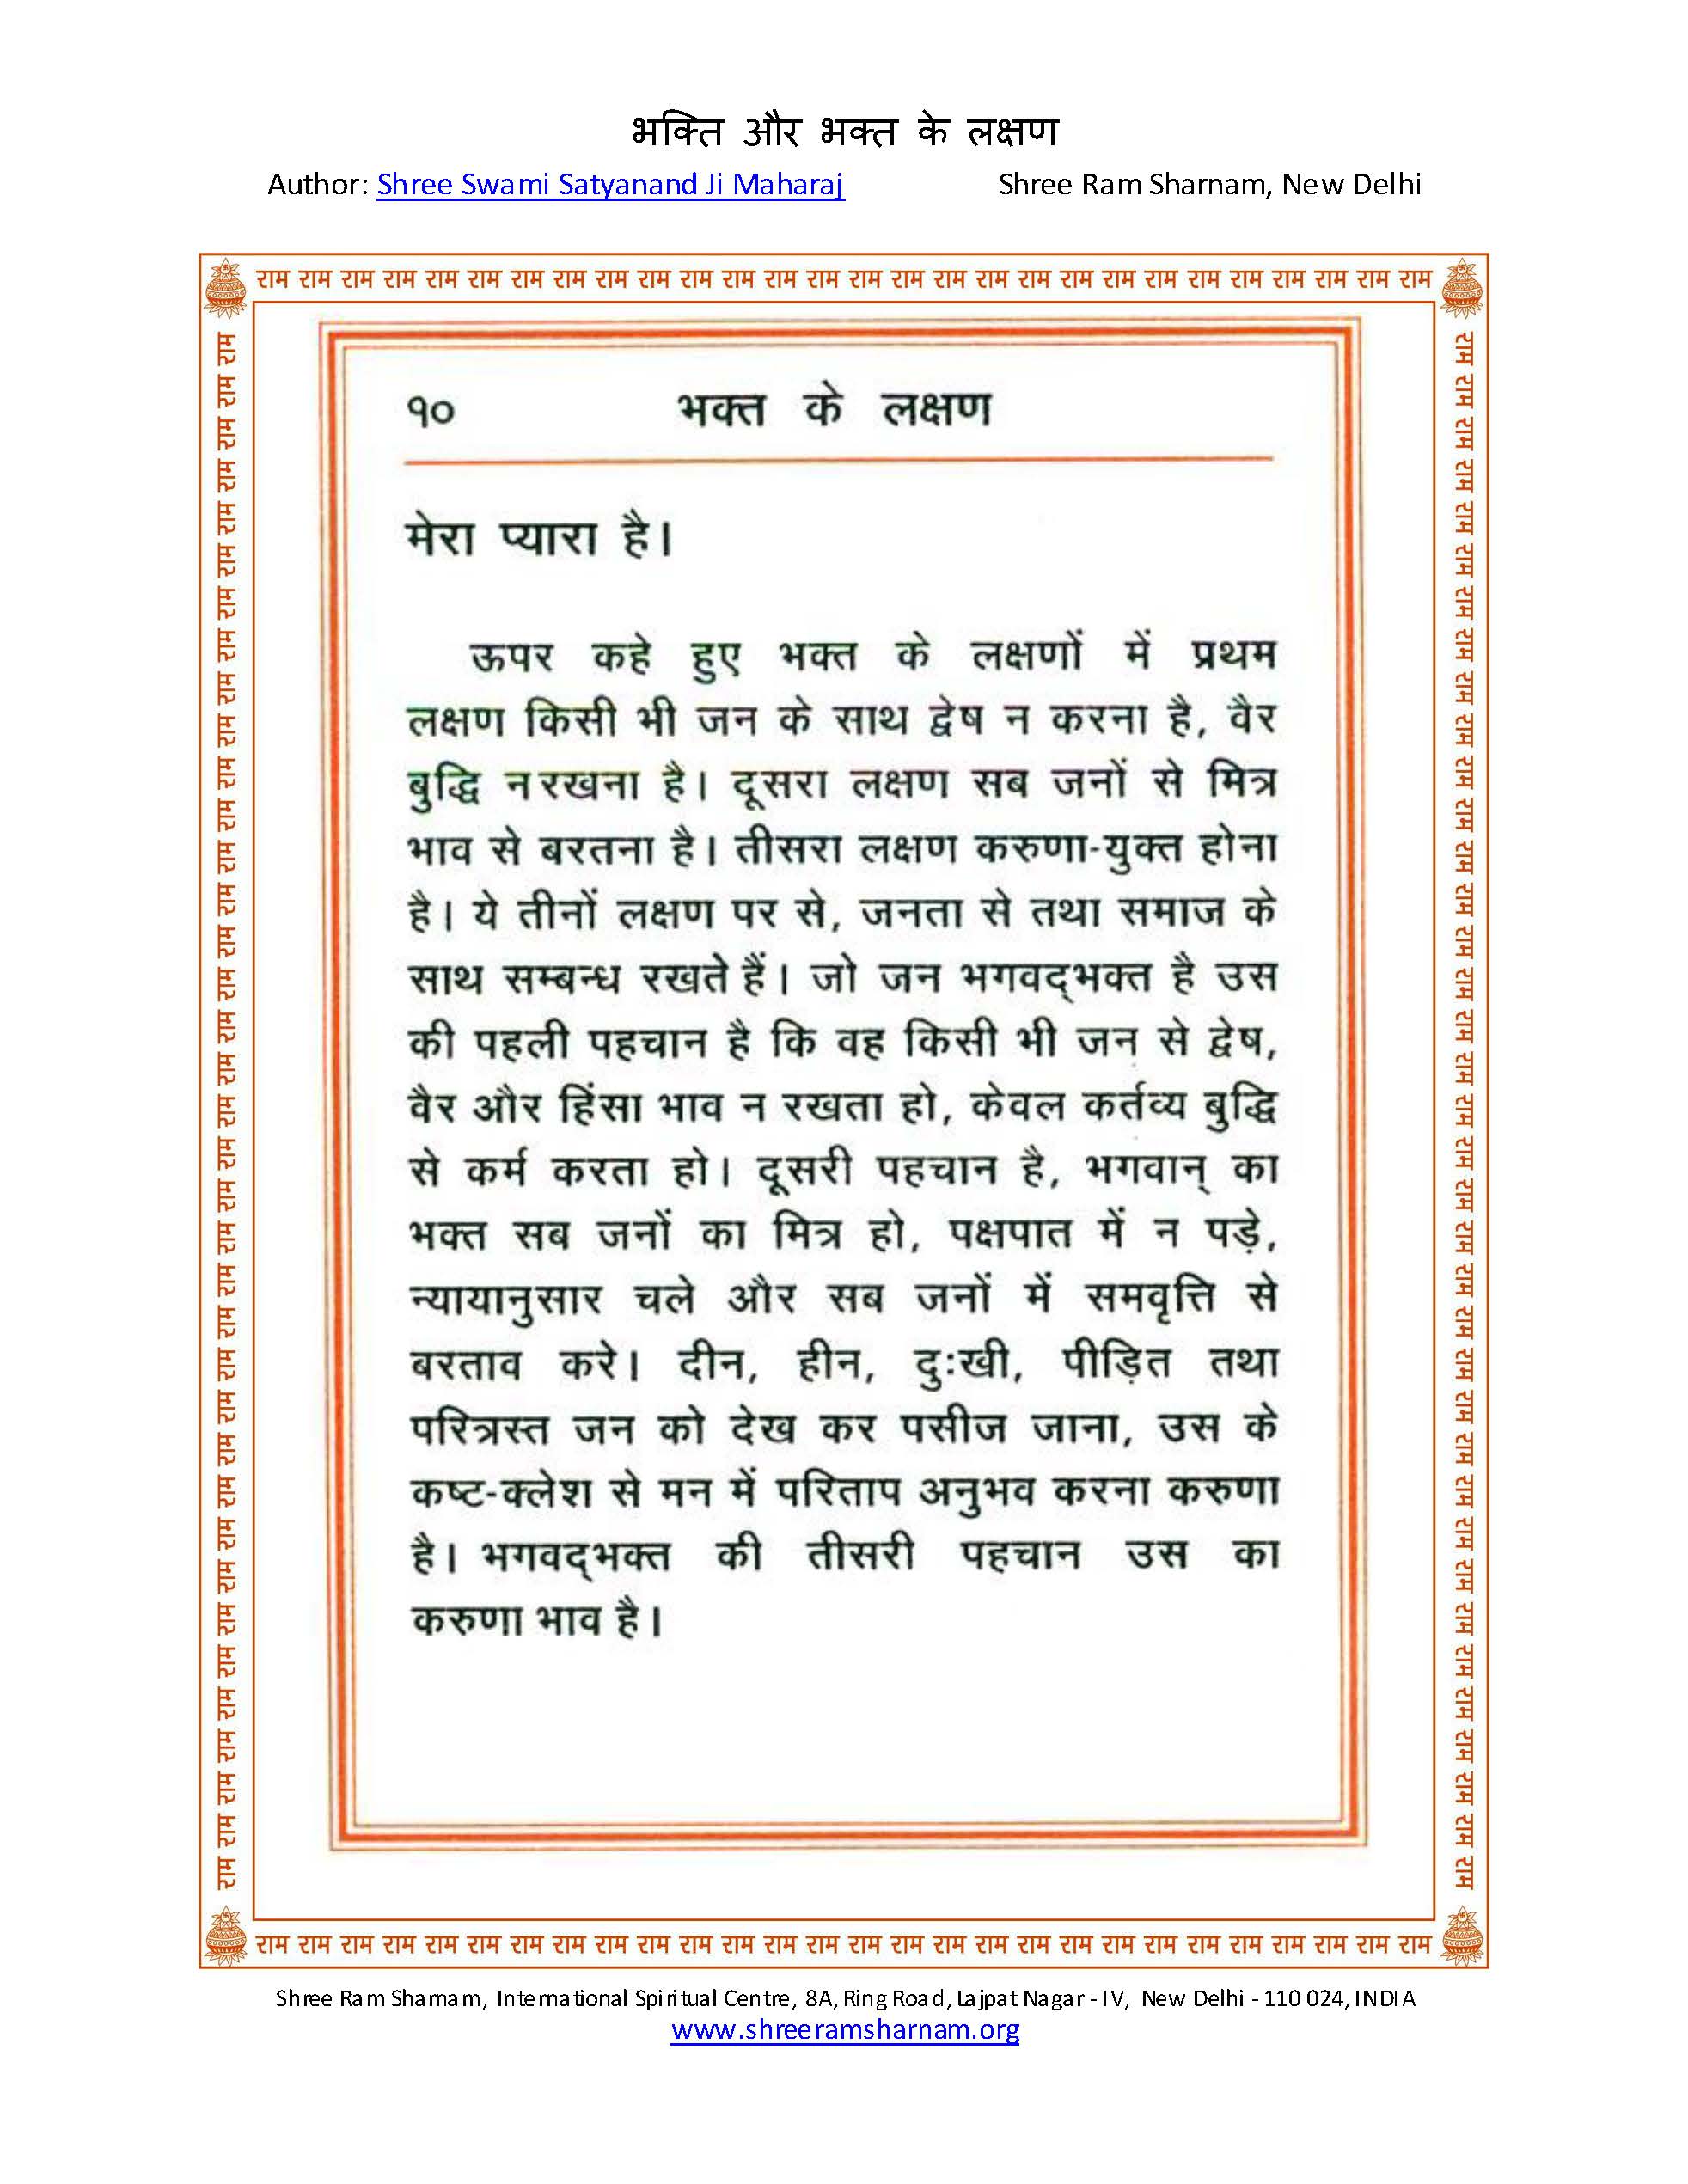 भक्ति और भक्त के लक्षण
Author: Shree Swami Satyanand Ji Maharaj Shree Ram Sharnam, New Delhi
राम राम राम राम राम राम राम राम राम राम राम राम राम राम राम राम राम राम राम राम राम राम राम राम राम राम राम राम
१० भक्त के लक्षण
मेरा प्यारा है।
ऊपर कहे हुए भक्त के लक्षणों में प्रथम
लक्षण किसी भी जन के साथ द्वेष न करना है, वैर
बुद्धि न रखना है। दूसरा लक्षण सब जनों से मित्र
भाव से बरतना है। तीसरा लक्षण करुणा-युक्त होना
है। ये तीनों लक्षण पर से, जनता से तथा समाज के
साथ सम्बन्ध रखते हैं। जो जन भगवद्‌भक्त है उस
की पहली पहचान है कि वह किसी भी जन से द्वेष,
वैर और हिंसा भाव न रखता हो, केवल कर्तव्य बुद्धि
से कर्म करता हो। दूसरी पहचान है, भगवान् का
भक्त सब जनों का मित्र हो, पक्षपात में न पड़े,
न्यायानुसार चले और सब जनों में समवृत्ति से
बरताव करे। दीन, हीन, दुःखी, पीड़ित तथा
परित्रस्त जन को देख कर पसीज जाना, उस के
कष्ट-क्लेश से मन में परिताप अनुभव करना करुणा
है। भगवद्‌भक्त की तीसरी पहचान उस का
करुणा भाव है।
राम राम राम राम राम राम राम राम राम राम राम राम राम राम राम राम राम राम राम राम राम राम राम राम राम राम राम राम राम राम राम राम राम राम राम राम राम
राम राम राम राम राम राम राम राम राम राम राम राम राम राम राम राम राम राम राम राम राम राम राम राम राम राम राम राम राम राम राम राम राम राम राम राम राम
राम राम राम राम राम राम राम राम राम राम राम राम राम राम राम राम राम राम राम राम राम राम राम राम राम राम राम राम
Shree Ram Sharnam, International Spiritual Centre, 8A, Ring Road, Lajpat Nagar - IV, New Delhi - 110 024, INDIA
www.shreeramsharnam.org